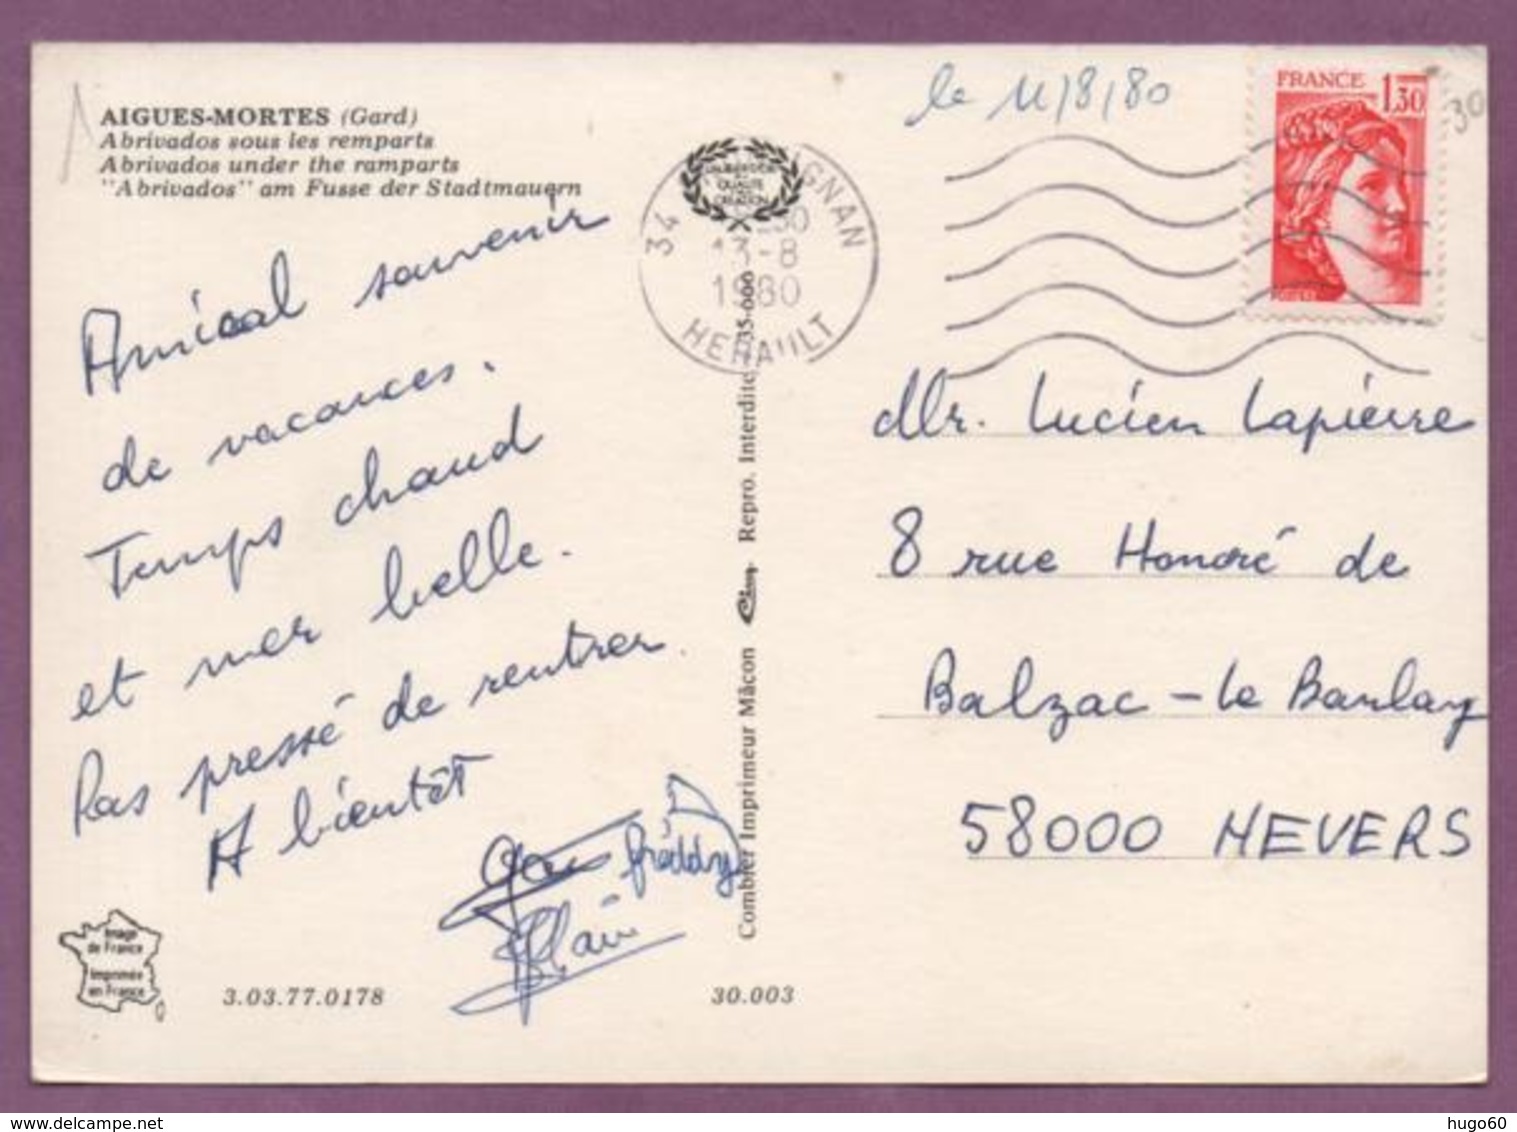 le 11/8/80
FRANCE 1,30
POSTES
30
AIGUES-MORTES (Gard)
Abrivados sous les remparts
Abrivados under the ramparts
"Abrivados" am Fusse der Stadtmauern
34 GNAN
13-8
1980
HERAULT
QUALITE
CREATION
Amical souvenir
de vacances.
Temps chaud
et mer belle.
Pas pressé de rentrer.
A bientôt
fréddy
Alain
Mr. Lucien Lapierre
8 rue Honoré de
Balzac - le Banlay
58000 NEVERS
Combier Imprimeur Mâcon Cim Repro. Interdite 35-666
Image
de France
Imprimée
en France
3.03.77.0178
30.003
www.delcampe.net
hugo60